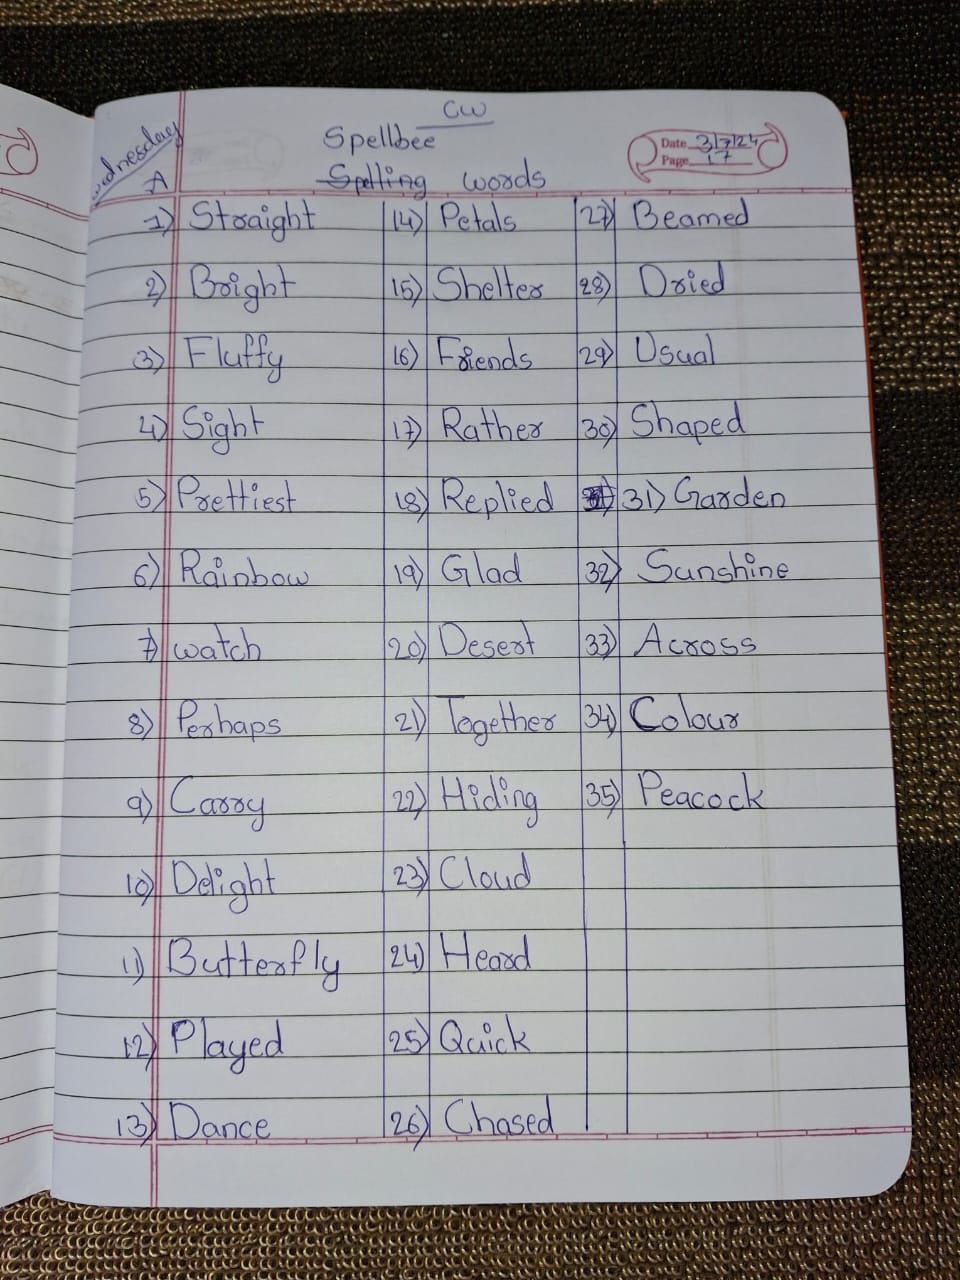 CW
Wednesday
Spellbee
Date 3/7/24
Page 17
A
Spelling words
1) Straight
2) Bright
3) Fluffy
4) Sight
5) Prettiest
6) Rainbow
7) watch
8) Perhaps
9) Carry
10) Delight
11) Butterfly
12) Played
13) Dance
14) Petals
15) Shelter
16) Friends
17) Rather
18) Replied
19) Glad
20) Desert
21) Together
22) Hiding
23) Cloud
24) Heard
25) Quick
26) Chased
27) Beamed
28) Dried
29) Usual
30) Shaped
31) Garden
32) Sunshine
33) Across
34) Colour
35) Peacock